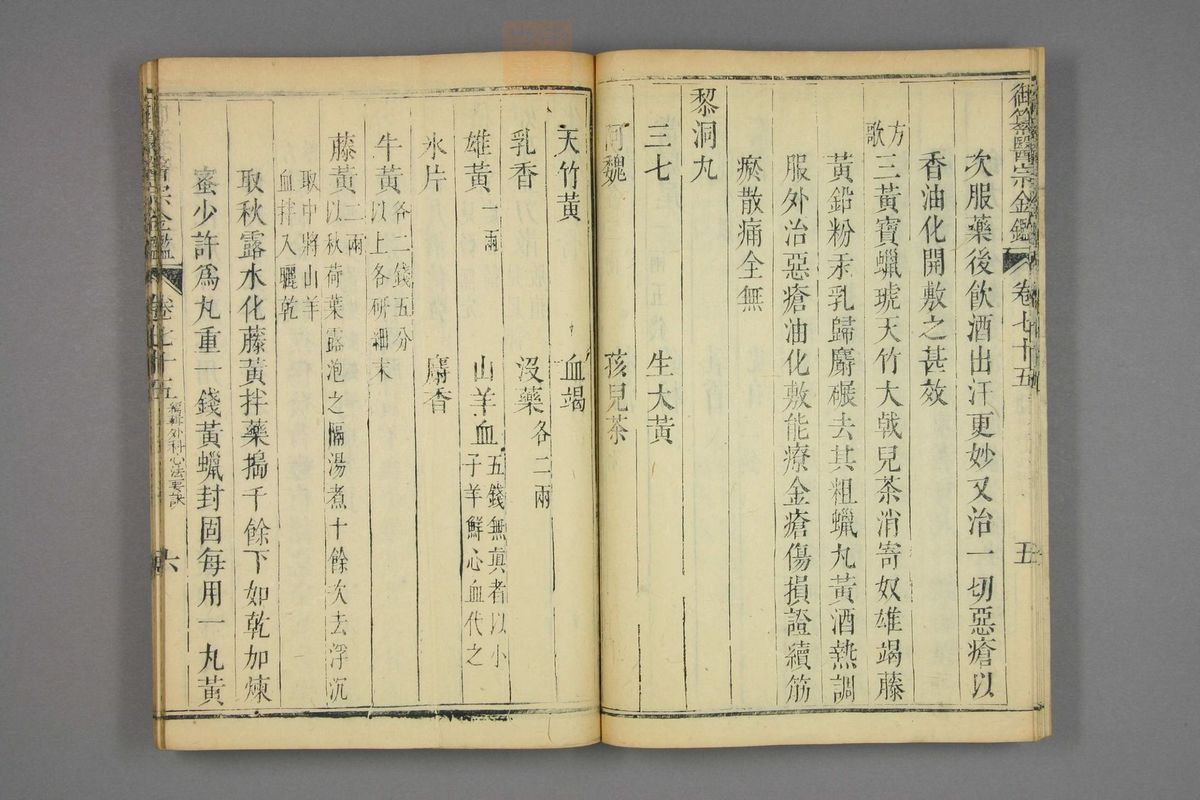 御纂醫宗金鑑 卷七十五 五
次服藥後飲酒出汗更妙又治一切惡瘡以
香油化開敷之甚效
方歌
三黃寶蠟琥天竹大戟兒茶消寄奴雄竭藤
黃鉛粉汞乳歸麝碾去其粗蠟丸黃酒熱調
服外治惡瘡油化敷能療金瘡傷損證續筋
瘀散痛全無
黎洞丸
三七 生大黃
阿魏 孩兒茶
天竹黃 血竭
乳香 沒藥各二兩
雄黃一兩 山羊血五錢無真者以小
子羊鮮心血代之
氷片 麝香
牛黃各二錢五分
以上各研細末
藤黃二兩
以秋荷葉露泡之隔湯煮十餘次去浮沉
取中將山羊
血拌入曬乾
取秋露水化藤黃拌藥搗千餘下如乾加煉
蜜少許為丸重一錢黃蠟封固每用一丸黃
卷七十五 編輯外科心法要訣 六